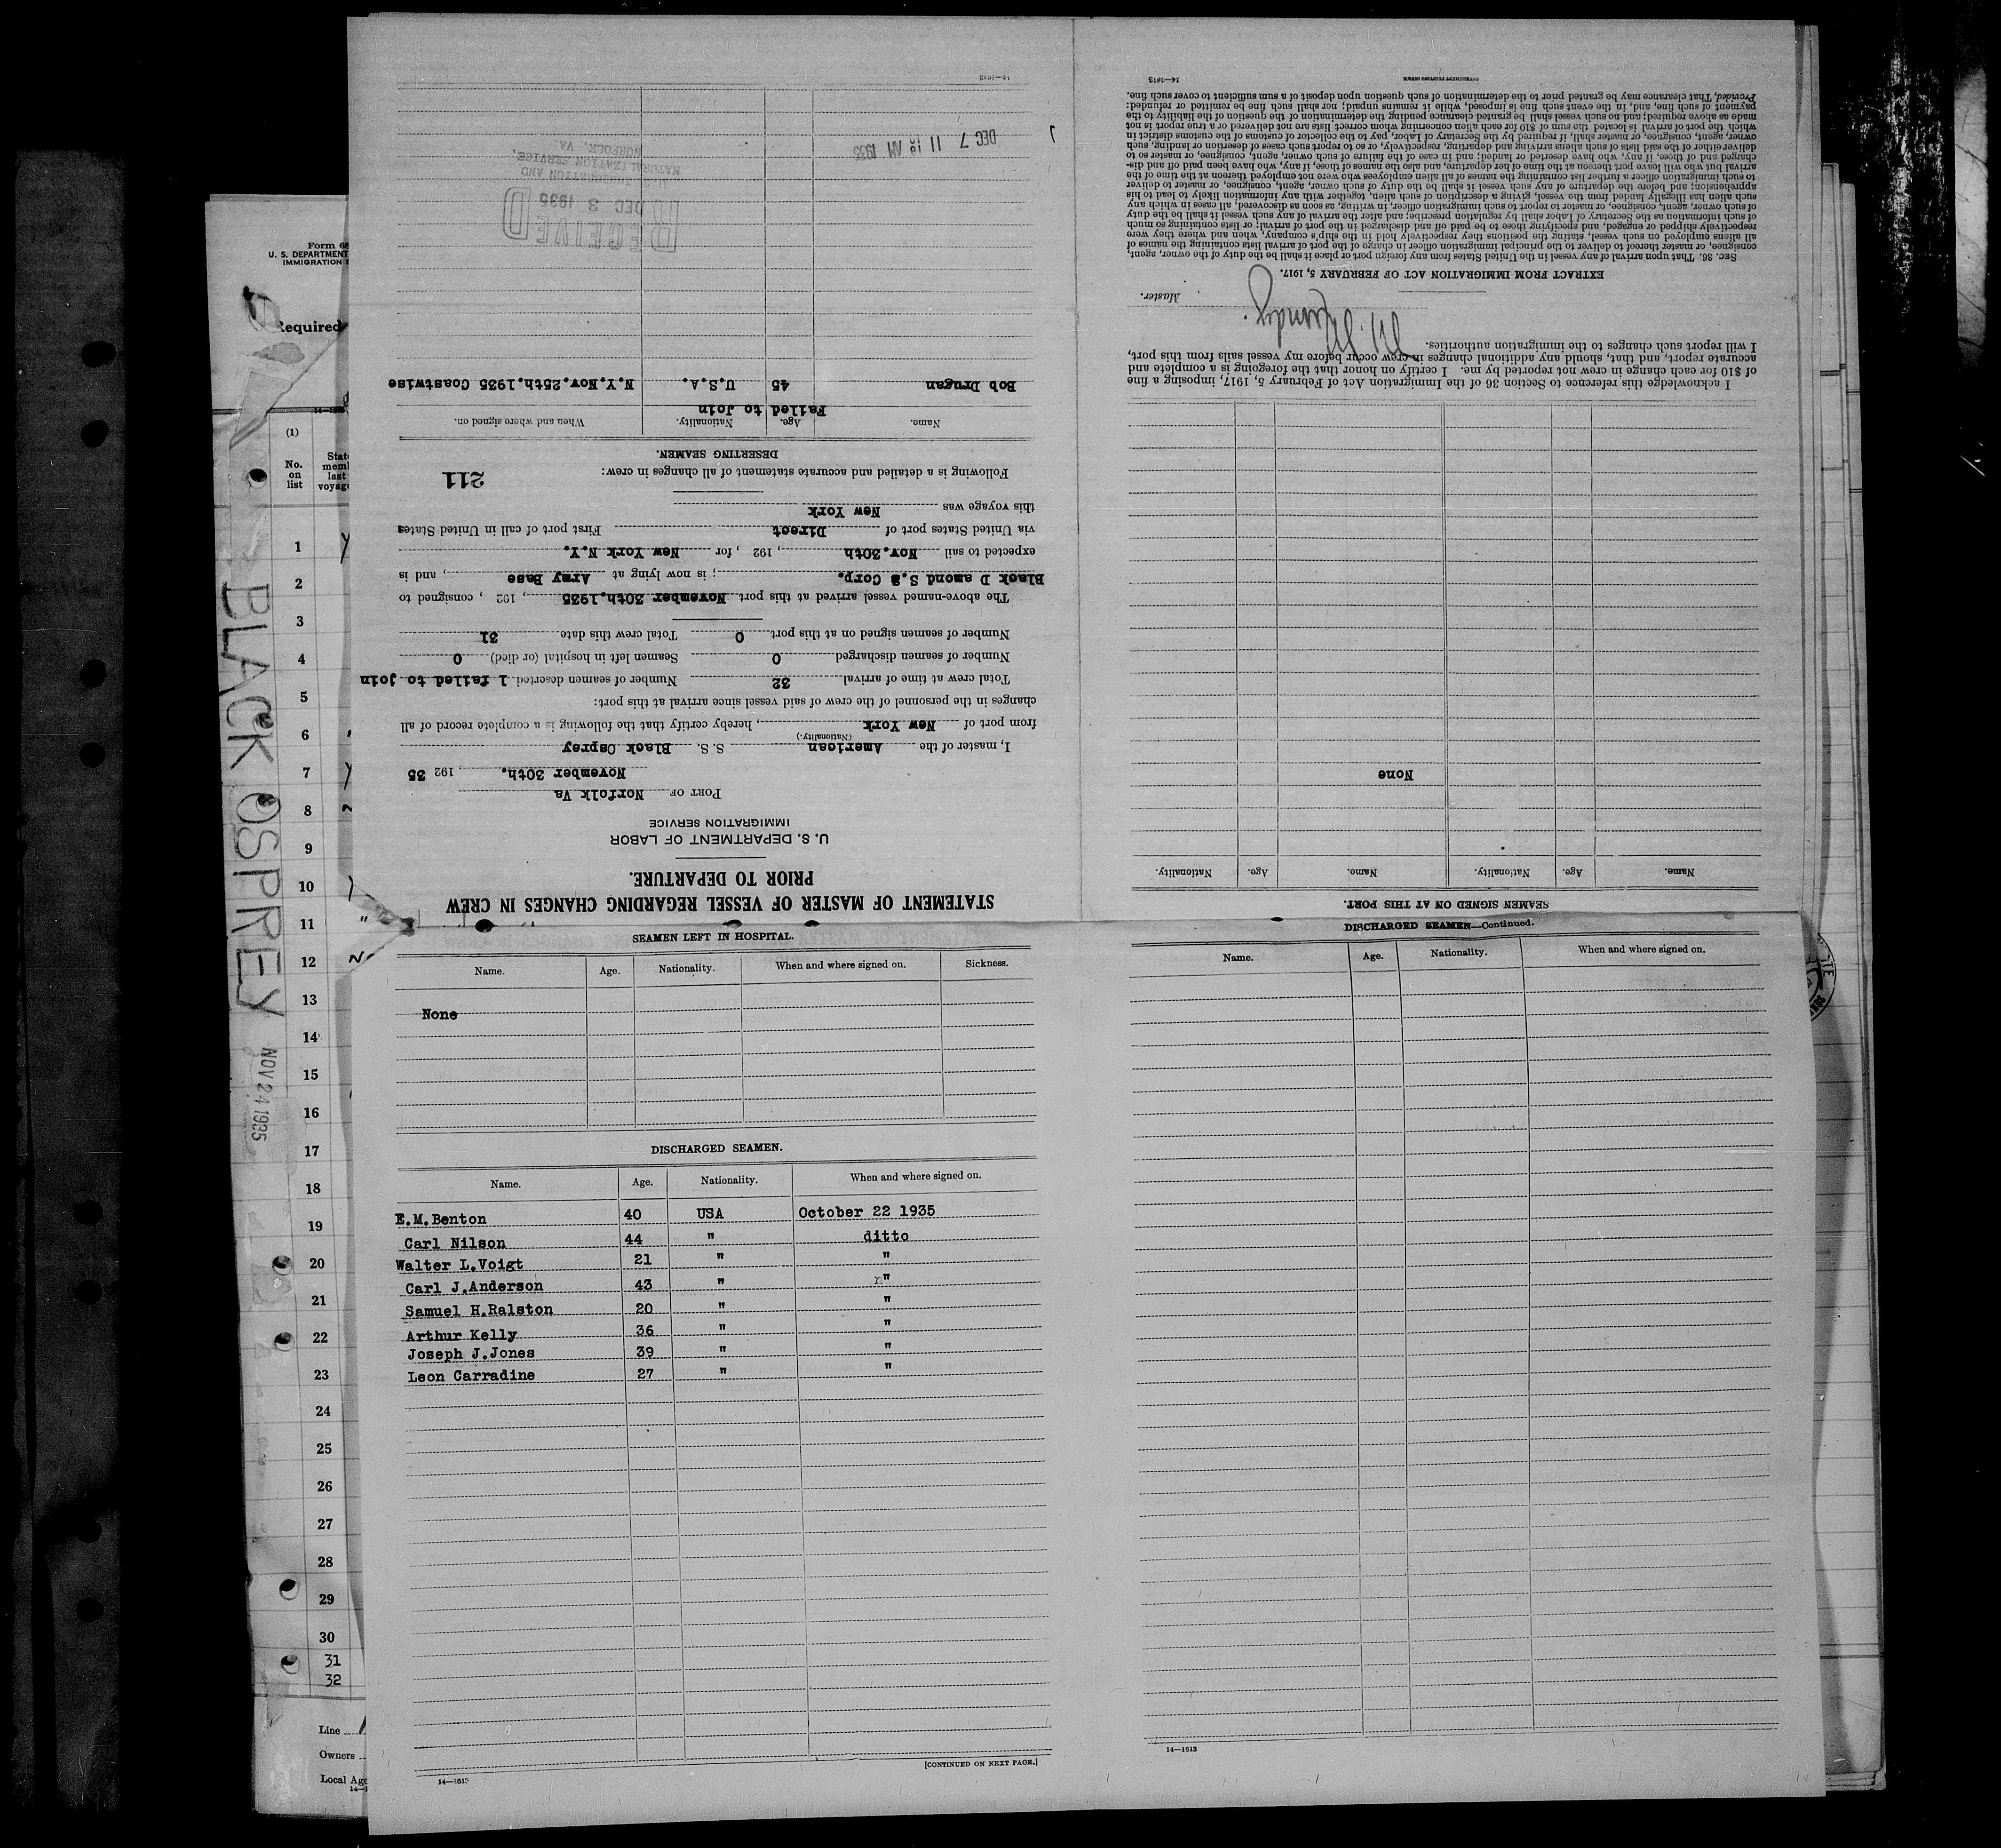 Form 68
U. S. DEPARTMENT
IMMIGRATION
Required
(1)
No.
on
list
State
memb
last
voyage
1
2
3
4
5
6
7
8
9
10
11
12
13
14
15
16
17
18
19
20
21
22
23
24
25
26
27
28
29
30
31
32
Line
Owners
Local Age
BLACK OSPREY
NOV 24 1935
STATEMENT OF MASTER OF VESSEL REGARDING CHANGES IN CREW
PRIOR TO DEPARTURE.
U. S. DEPARTMENT OF LABOR
IMMIGRATION SERVICE
PORT OF Norfolk Va
November 30th. , 192 35
I, master of the American S. S. Black Osprey
(Nationality.)
from port of New York , hereby certify that the following is a complete record of all
changes in the personnel of the crew of said vessel since arrival at this port:
Total crew at time of arrival 32 Number of seamen deserted 1 failed to join
Number of seamen discharged 0 Seamen left in hospital (or died) 0
Number of seamen signed on at this port 0 Total crew this date 31
The above-named vessel arrived at this port November 30th.1935 , 192 , consigned to
Black D amond S.S Corp. ; is now lying at Army Base , and is
expected to sail Nov.30th , 192 , for New York N.Y.
via United States port of Direct First port of call in United States
this voyage was New York
Following is a detailed and accurate statement of all changes in crew: 211
DESERTING SEAMEN.
Name. Age. Nationality. When and where signed on.
Failed to join
Bob Drugan 45 U.S.A. N.Y.Nov.25th.1935 Coastwise
RECEIVED
DEC 3 1935
U.S. IMMIGRATION AND
NATURALIZATION SERVICE,
NORFOLK, VA.
DEC 7 11 18 AM 1935
14—1613
SEAMEN SIGNED ON AT THIS PORT.
Name. Age. Nationality. Name. Age. Nationality.
None
I acknowledge this reference to Section 36 of the Immigration Act of February 5, 1917, imposing a fine
of $10 for each change in crew not reported by me. I certify on honor that the foregoing is a complete and
accurate report, and that, should any additional changes in crew occur before my vessel sails from this port,
I will report such changes to the immigration authorities.
Master.
EXTRACT FROM IMMIGRATION ACT OF FEBRUARY 5, 1917.
SEC. 36. That upon arrival of any vessel in the United States from any foreign port or place it shall be the duty of the owner, agent,
consignee, or master thereof to deliver to the principal immigration officer in charge of the port of arrival lists containing the names of
all aliens employed on such vessel, stating the positions they respectively hold in the ship's company, when and where they were
respectively shipped or engaged, and specifying those to be paid off and discharged in the port of arrival; or lists containing so much
of such information as the Secretary of Labor shall by regulation prescribe; and after the arrival of any such vessel it shall be the duty
of such owner, agent, consignee, or master to report to such immigration officer, in writing, as soon as discovered, all cases in which any
such alien has illegally landed from the vessel, giving a description of such alien, together with any information likely to lead to his
apprehension; and before the departure of any such vessel it shall be the duty of such owner, agent, consignee, or master to deliver
to such immigration officer a further list containing the names of all alien employees who were not employed thereon at the time of the
arrival but who will leave port thereon at the time of her departure, and also the names of those, if any, who have been paid off and dis-
charged and of those, if any, who have deserted or landed; and in case of the failure of such owner, agent, consignee, or master so to
deliver either of the said lists of such aliens arriving and departing, respectively, or so to report such cases of desertion or landing, such
owner, agent, consignee, or master shall, if required by the Secretary of Labor, pay to the collector of customs of the customs district in
which the port of arrival is located the sum of $10 for each alien concerning whom correct lists are not delivered or a true report is not
made as above required; and no such vessel shall be granted clearance pending the determination of the question of the liability to the
payment of such fine, and, in the event such fine is imposed, while it remains unpaid; nor shall such fine be remitted or refunded:
Provided, That clearance may be granted prior to the determination of such question upon deposit of a sum sufficient to cover such fine.
GOVERNMENT PRINTING OFFICE
14—1613
SEAMEN LEFT IN HOSPITAL.
Name. Age. Nationality. When and where signed on. Sickness.
None
DISCHARGED SEAMEN.
Name. Age. Nationality. When and where signed on.
E.M.Benton 40 USA October 22 1935
Carl Nilson 44 " ditto
Walter L.Voigt 21 " "
Carl J.Anderson 43 " "
Samuel H.Ralston 20 " "
Arthur Kelly 36 " "
Joseph J.Jones 39 " "
Leon Carradine 27 " "
[CONTINUED ON NEXT PAGE.]
14—1613
DISCHARGED SEAMEN—Continued.
Name. Age. Nationality. When and where signed on.
14—1613